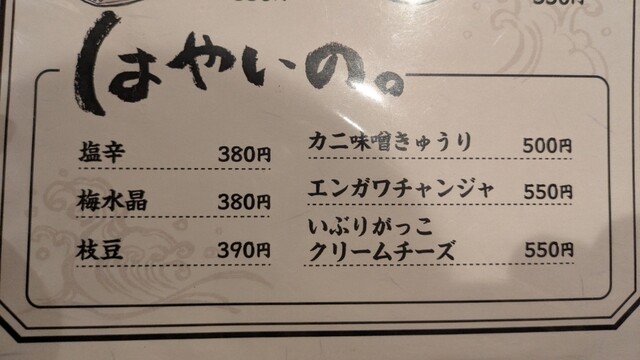 はやいの。
塩辛 380円
梅水晶 380円
枝豆 390円
カニ味噌きゅうり 500円
エンガワチャンジャ 550円
いぶりがっこ
クリームチーズ 550円